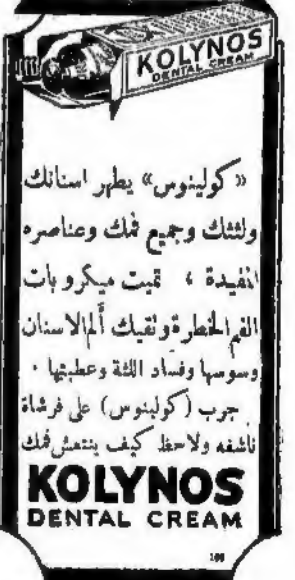 KOLYNOS
DENTAL CREAM
«كولينوس» يطهر اسنانك
ولثتك وجميع فمك وعناصره
المفيدة ، تميت ميكروبات
الفم الخطرة وتقيك ألم الاسنان
وسوسها وفساد اللثة وعطبتها ·
جرب (كولينوس) على فرشاة
ناشفه ولاحظ كيف ينتعش فمك
KOLYNOS
DENTAL CREAM